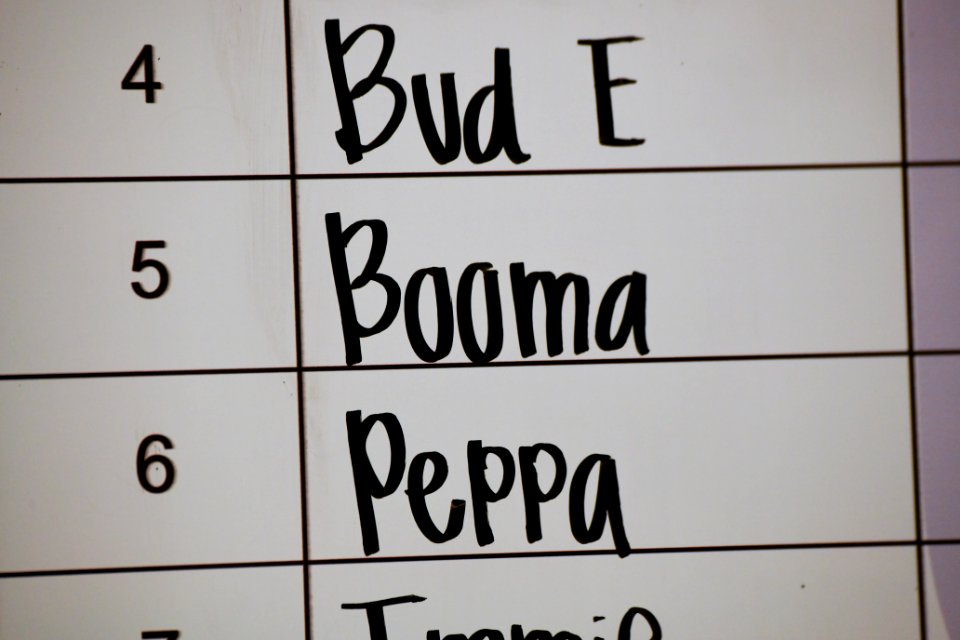 4 Bud E
5 Booma
6 Peppa
7